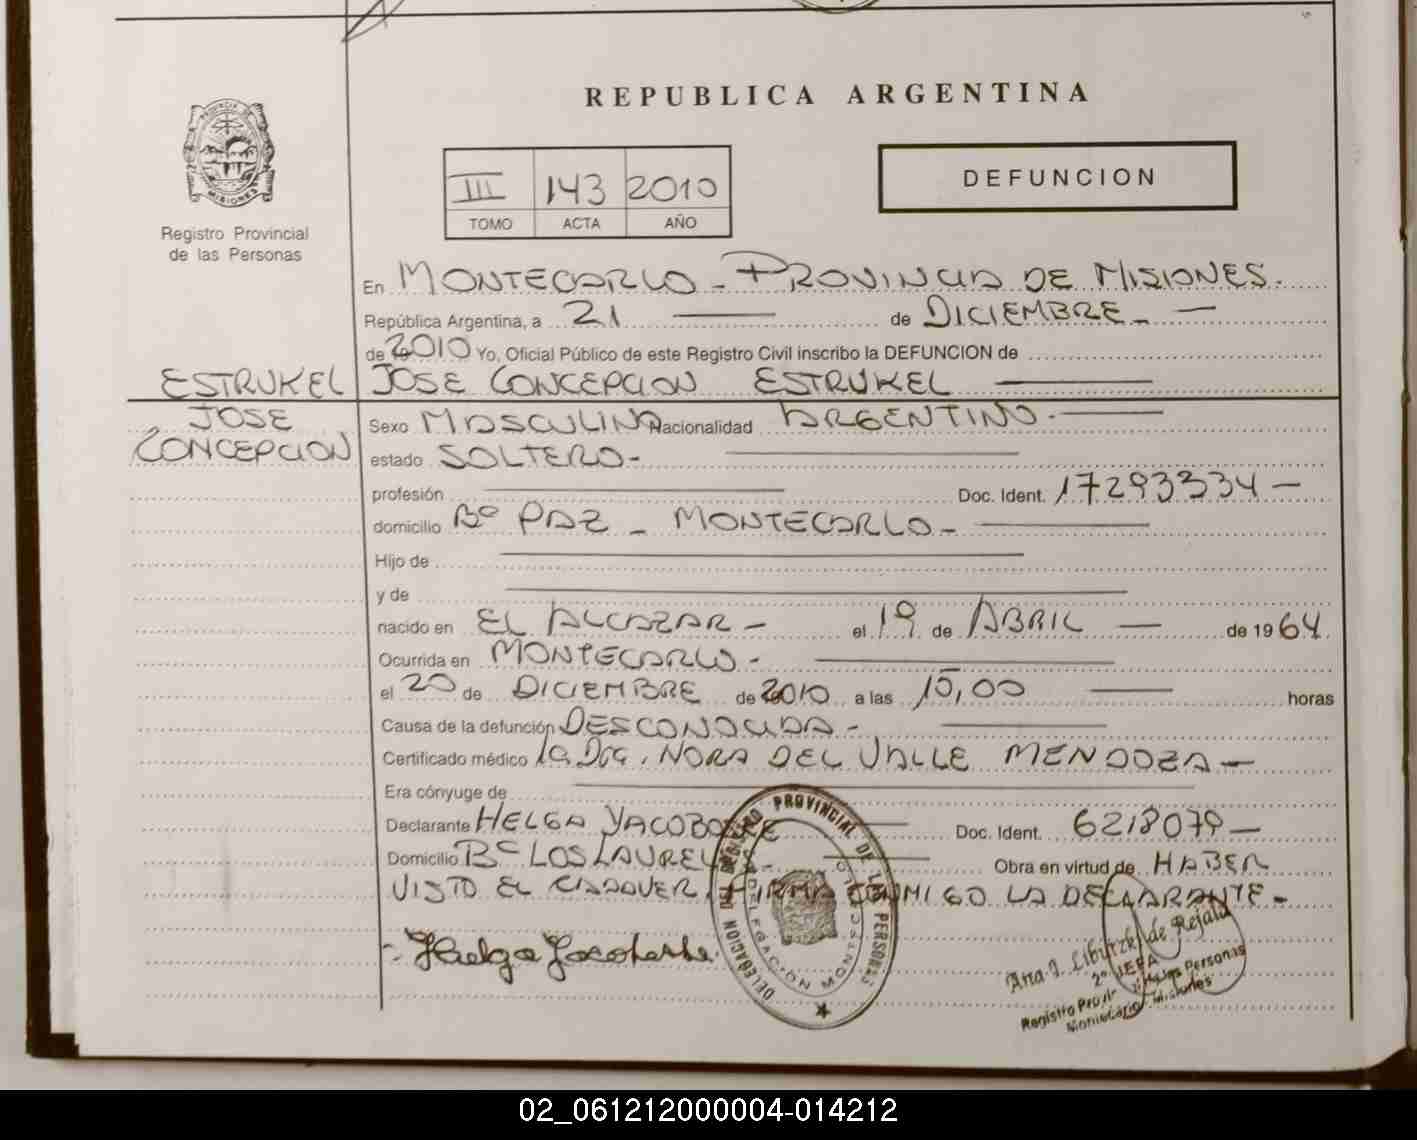 REPUBLICA ARGENTINA
PROVINCIA DE
MISIONES
Registro Provincial
de las Personas
III 143 2010
TOMO ACTA AÑO
DEFUNCION
En MONTECARLO - PROVINCIA DE MISIONES.
República Argentina, a 21 de DICIEMBRE -
de 2010 Yo, Oficial Público de este Registro Civil inscribo la DEFUNCION de
ESTRUKEL JOSE CONCEPCION ESTRUKEL
JOSE
CONCEPCION
Sexo MASCULINO Nacionalidad ARGENTINO.
estado SOLTERO-
profesión Doc. Ident. 17293334 -
domicilio Bº PAZ - MONTECARLO -
Hijo de
y de
nacido en EL ALCAZAR - el 19 de ABRIL - de 1964
Ocurrida en MONTECARLO -
el 20 de DICIEMBRE de 2010 a las 15,00 horas
Causa de la defunción DESCONOCIDA -
Certificado médico la Dra. NORA DEL VALLE MENDOZA -
Era cónyuge de
Declarante HELGA Doc. Ident. 6218079 -
Domicilio Bº LOS LAURELES - Obra en virtud de HABER
VISTO EL CADAVER. FIRMA CONMIGO LA DECLARANTE -
DELEGACION DEL REGISTRO PROVINCIAL DE LAS PERSONAS
DELEGACIÓN MONTECARLO
Helga
Ana I. de Rejala
2º JEFA
Registro Prov. de las Personas
Montecarlo - Misiones
02_061212000004-014212